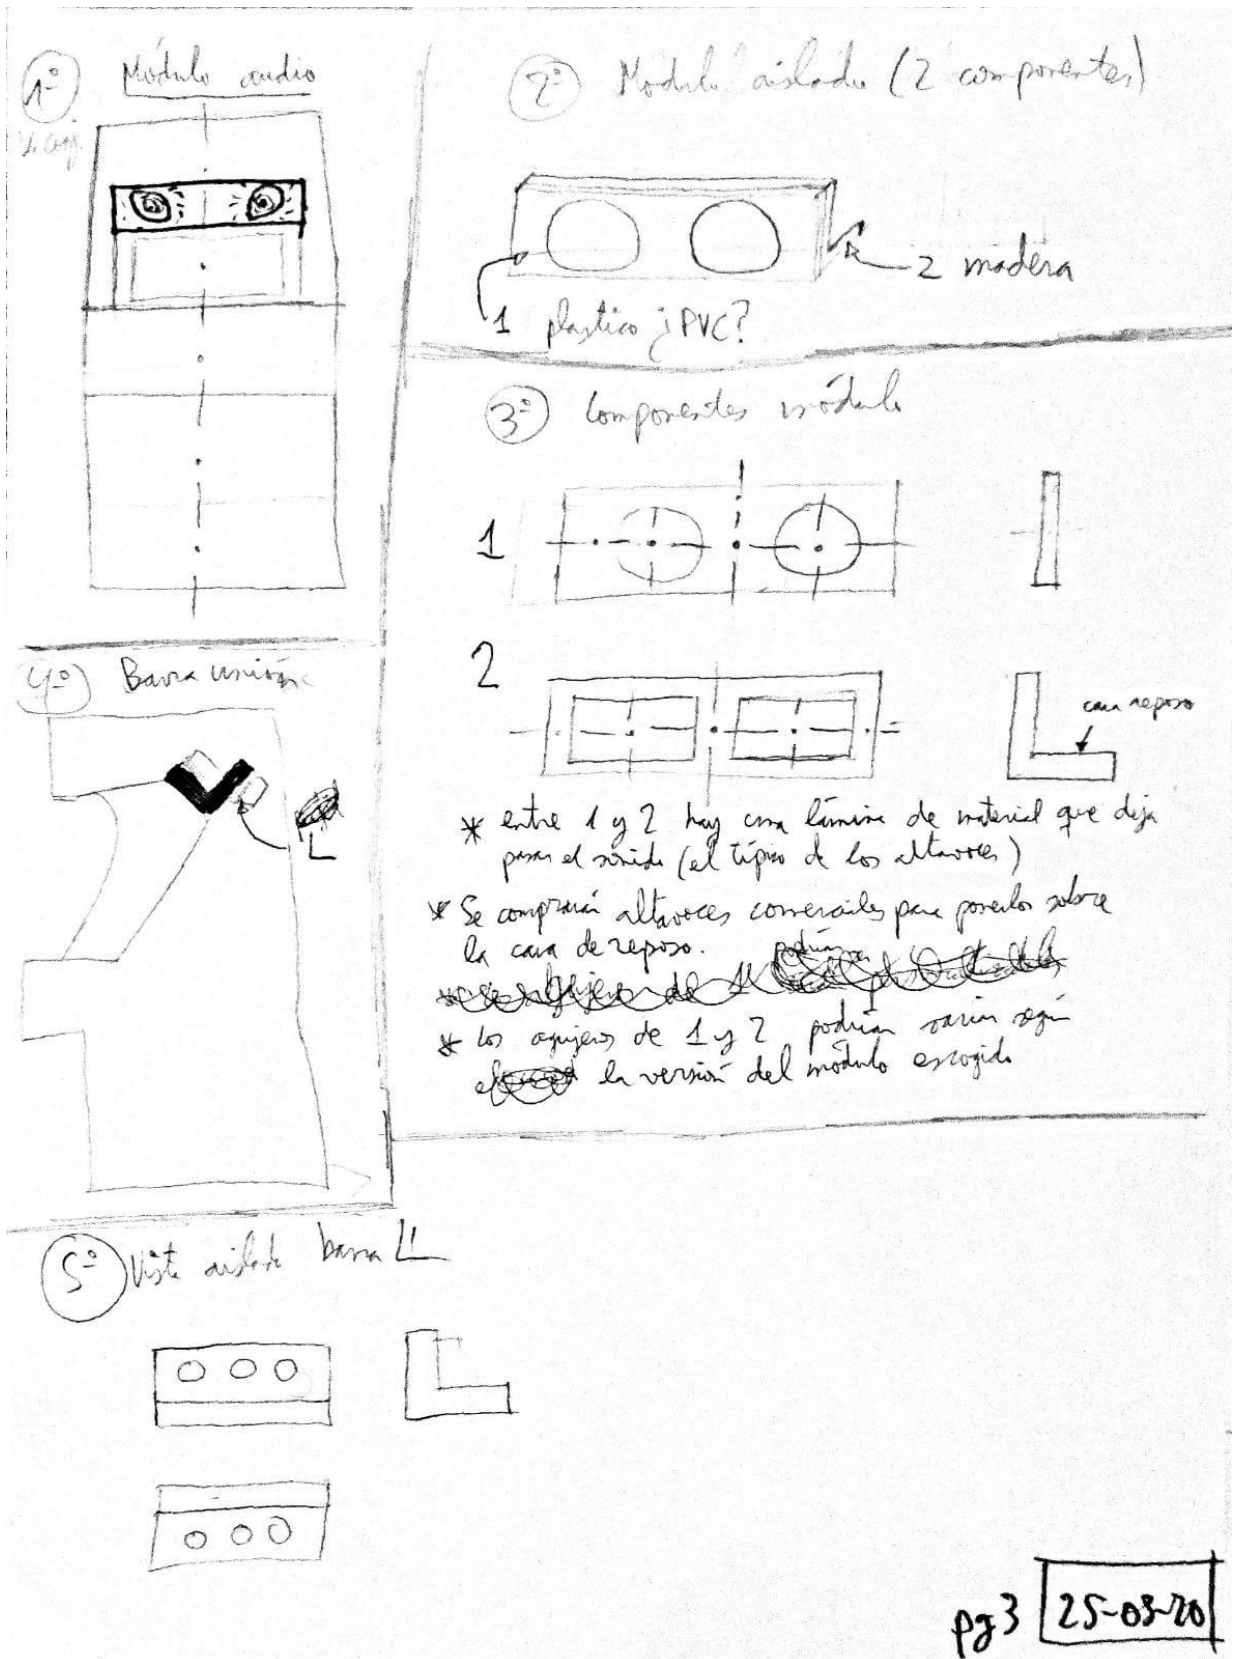 1º Módulo audio
2º Modulo aislado (2 componentes)
2 madera
1 plastico ¿PVC?
3º Componentes módulo
1
2
cara reposo
* entre 1 y 2 hay una lámina de material que deja
pasar el sonido (el típico de los altavoces)
* Se comprarán altavoces comerciales para ponerlos sobre
la cara de reposo.
podrían
* Los agujeros de 1 y 2 podrían variar según
la versión del módulo escogido
4º Barra unión
L
5º Vista aislada barra L
pg 3 25-03-20